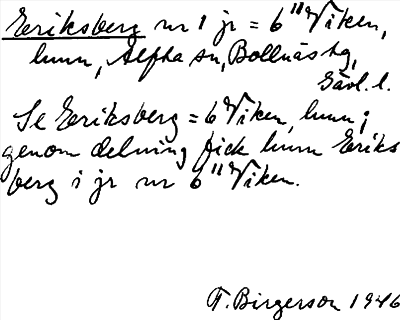 Eriksberg nr 1 jr = 6 11 Viken,
hmn, Alfta sn, Bollnäs tg,
Gävl. l.
Se Eriksberg = 6 9 Viken, hmn;
genom delning fick hmn Eriks
berg i jr nr 6 11 Viken.
F. Birgerson 1946